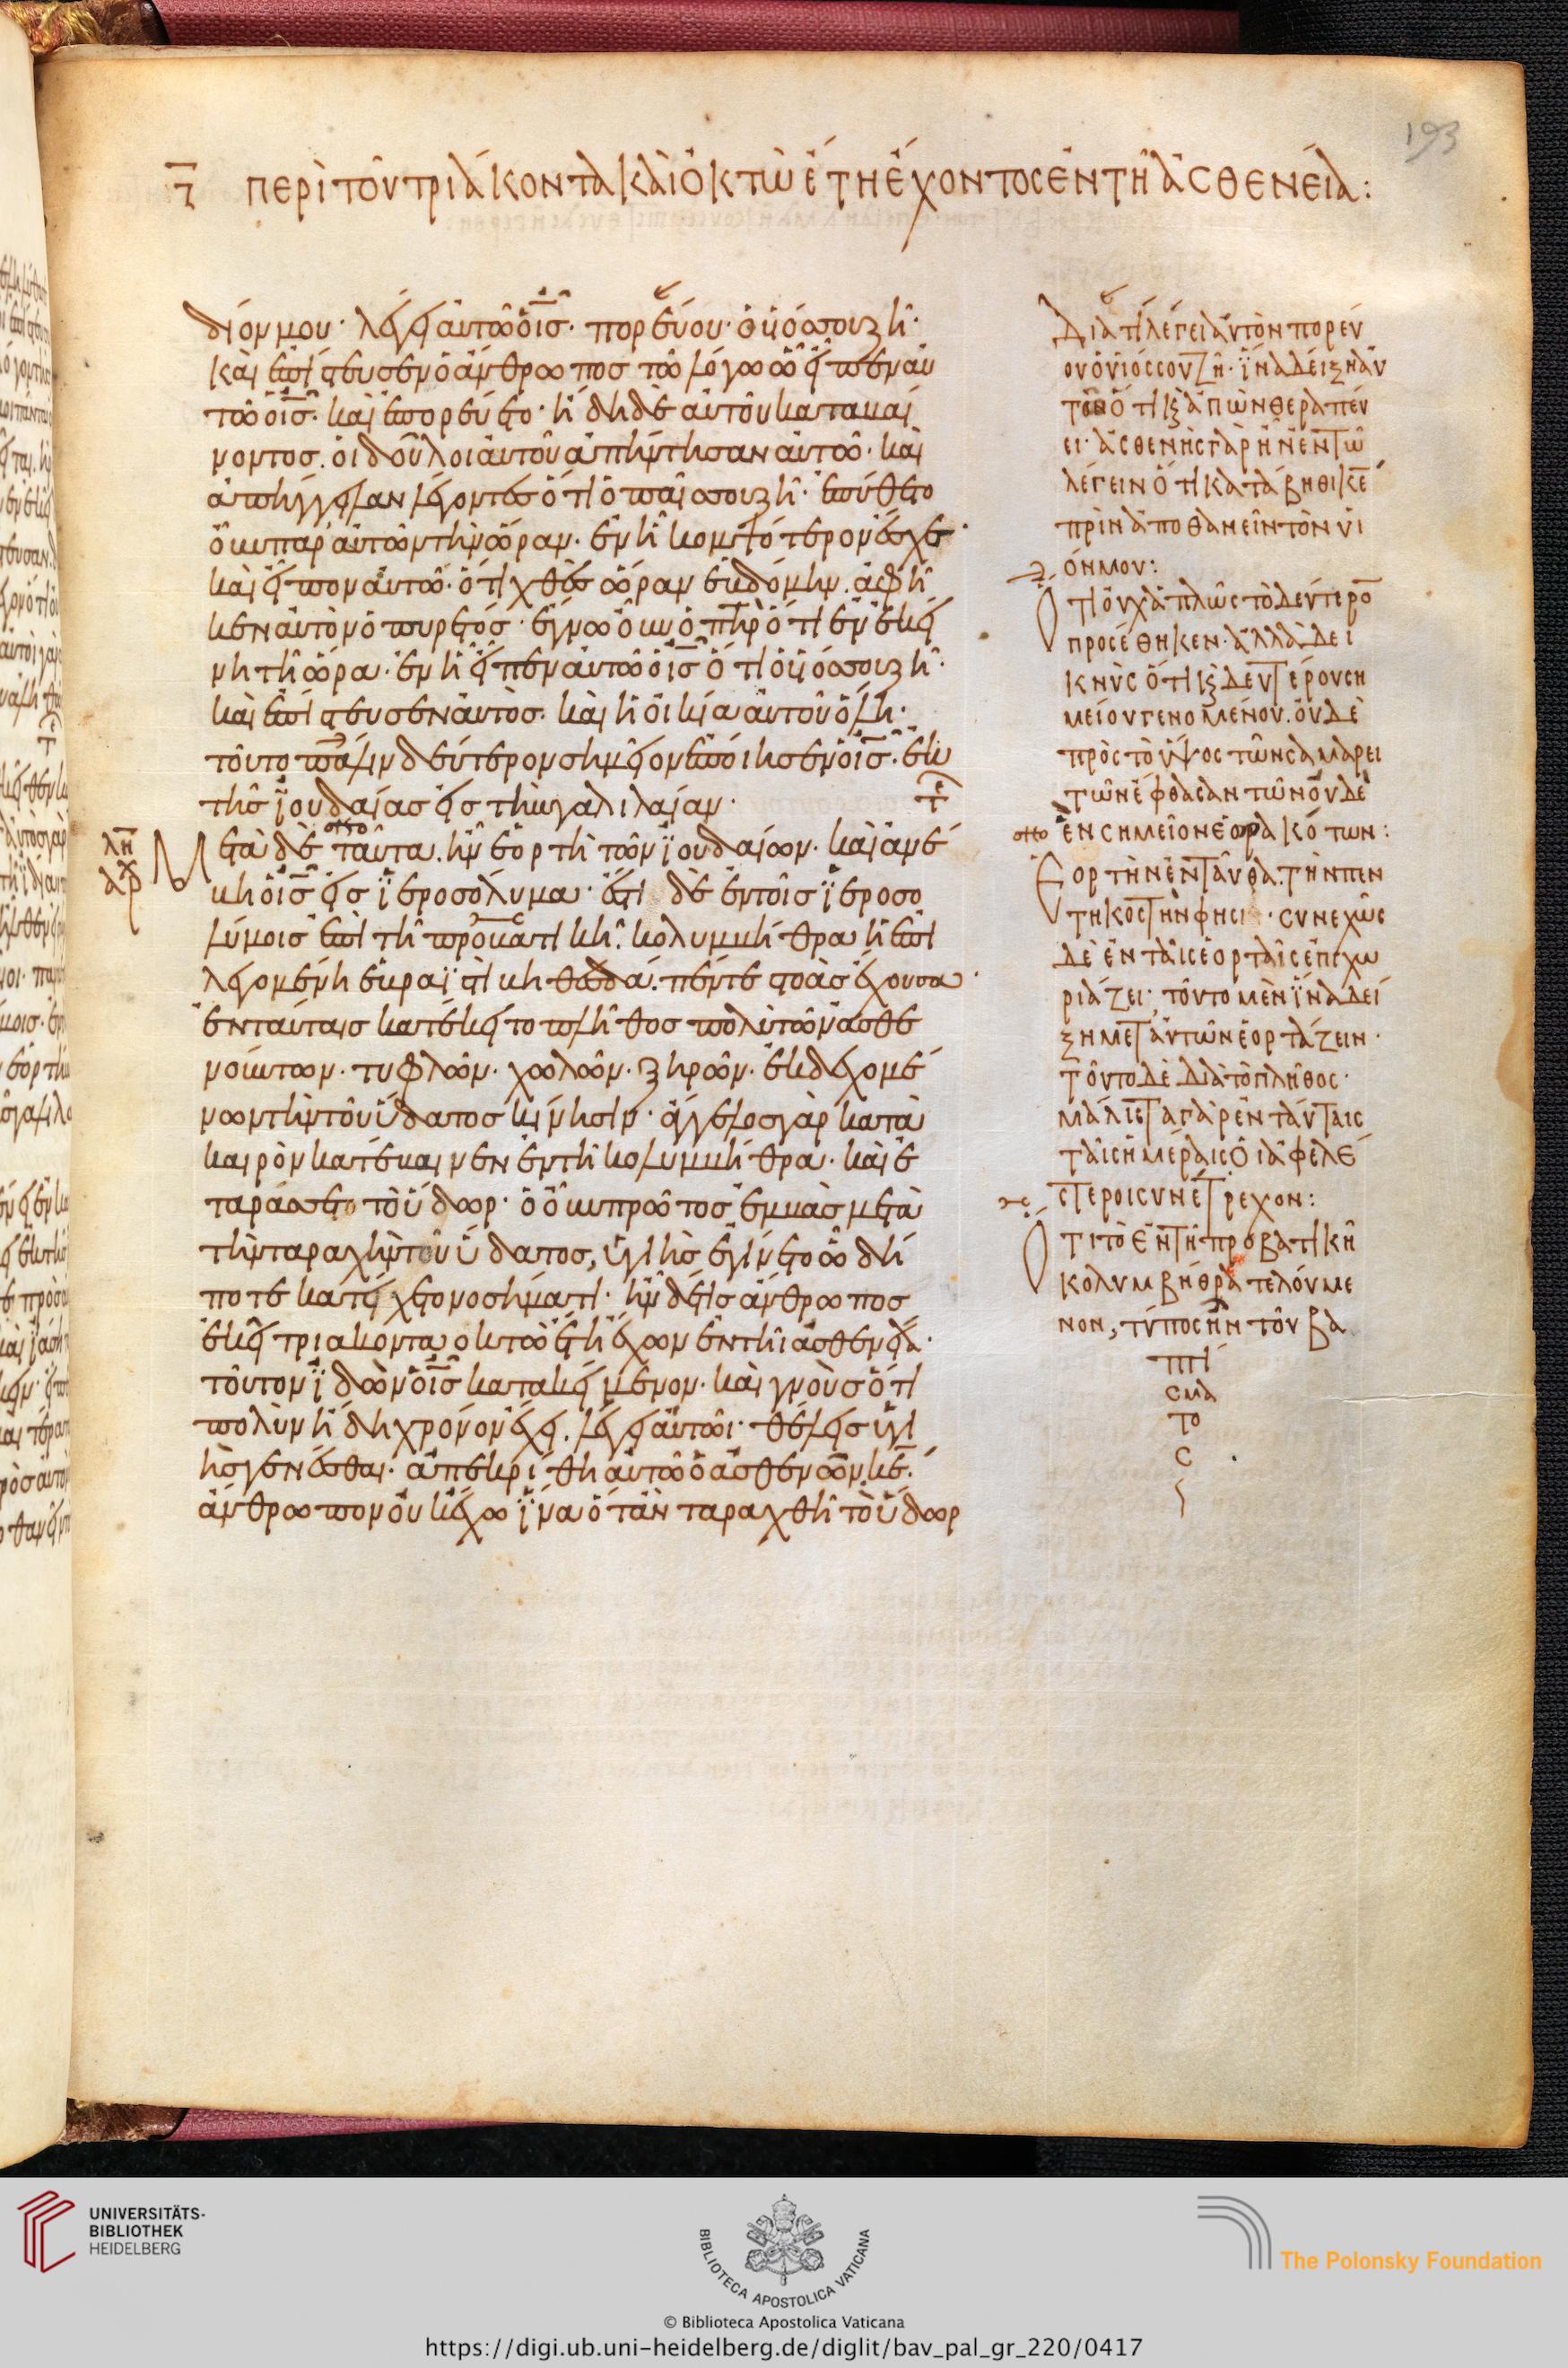 193
ζ περὶ τοῦ τριάκοντα καὶ ὀκτὼ ἔτη ἔχοντος ἐν τῆ ἀσθενεία:
δίον μου· λέγει αὐτῶ ὁ ις̅· πορεύου· ὁ υἱός σου ζῆ·
καὶ ἐπίστευσεν ὁ ἄνθρωπος τῶ λόγω ὧ εἶπεν αὐ
τῶ ὁ ις̅· καὶ ἐπορεύετο· ἤδη δὲ αὐτοῦ καταβαί
νοντος. οἱ δοῦλοι αὐτοῦ ἀπήντησαν αὐτῶ· καὶ
ἀπήγγειλαν λέγοντες ὅτι ὁ παῖς σου ζῆ· ἐπύθετο
οὖν παρ' αὐτῶν τὴν ὥραν. ἐν ἧ κομψότερον ἔσχε·
καὶ εἶπον αὐτῶ· ὅτι χθὲς ὥραν ἑβδόμην. ἀφῆ
κεν αὐτὸν ὁ πυρετός· ἔγνω οὖν ὁ πη̅ρ ὅτι ἐν ἐκεί
νη τῆ ὥρα· ἐν ἧ εἶπεν αὐτῶ ὁ ις̅ ὅτι ὁ υἱός σου ζῆ·
καὶ ἐπίστευσεν αὐτὸς· καὶ ἡ οἰκία αὐτοῦ ὅλη·
τοῦτο πάλιν δεύτερον σημεῖον ἐποίησεν ὁ ις̅· ἐκ
τῆς ἰουδαίας εἰς τὴν γαλιλαίαν·
λη̅
αρχ
Μετὰ δὲ ταῦτα. ἦν ἑορτὴ τῶν ἰουδαίων· καὶ ἀνέ
βη ὁ ις̅ εἰς ἱεροσόλυμα· ἔτι δὲ ἐν τοῖς ἱεροσο
λύμοις ἐπὶ τῆ προβατικῆ. κολυμβήθρα ἡ ἐπι
λεγομένη ἑβραϊστὶ βηθεσδά. πέντε στοὰς ἔχουσα·
ἐν ταύταις κατέκειτο πλῆθος πολὺ τῶν ἀσθε
νούντων· τυφλῶν· χωλῶν· ξηρῶν· ἐκδεχομέ
νων τὴν τοῦ ὕδατος κίνησιν· ἄγγελος γὰρ κατὰ
καιρὸν κατέβαινεν ἐν τῆ κολυμβήθρα· καὶ ἐ
ταράσσετο τὸ ὕδωρ· ὁ οὖν πρῶτος ἐμβὰς μετὰ
τὴν ταραχὴν τοῦ ὕδατος, ὑγιὴς ἐγίνετο ὧ δή
ποτε κατείχετο νοσήματι· ἦν δέ τις ἄνθρωπος
ἐκεῖ τριακονταοκτὼ ἔτη ἔχων ἐν τῆ ἀσθενεία·
τοῦτον ἰδὼν ὁ ις̅ κατακείμενον· καὶ γνοὺς ὅτι
πολὺν ἤδη χρόνον ἔχει. λέγει αὐτῶι· θέλεις ὑγι
ὴς γενέσθαι· ἀπεκρίθη αὐτῶ ὁ ἀσθενῶν. κε̅·
ἄνθρωπον οὐκ ἔχω ἵνα ὅταν ταραχθῆ τὸ ὕδωρ
Διατί λέγει αὐτὸν πορεύ
ου ὁ υἱός σου ζῆ· ἵνα δείξη αὐ
τῶ ὅτι κ ἀπὼν θεραπεύ
ει· ἀσθενὴς γὰρ ἦν ἐν τῶ
λέγειν ὅτι κατάβηθι κε̅
πρὶν ἀποθανεῖν τὸν υἱ
όν μου:
Ὅτι οὐχ ἁπλῶς τὸ δεύτερο̅
προσέθηκεν· ἀλλὰ δει
κνὺς ὅτι κ δευτέρου ση
μείου γενομένου. οὐδὲ
πρὸς τὸ ὕψος τῶν σαμαρει
τῶν ἔφθασαν τῶν οὐδὲ
ἓν σημεῖον ἑορακότων:
Ἑορτὴν ἐνταῦθα. τὴν πεν
τηκοστήν φησι· συνεχῶς
δὲ ἐν ταῖς ἑορταῖς ἐπιχω
ριάζει, τοῦτο μὲν ἵνα δεί
ξη μετ αὐτῶν ἑορτάζειν·
τοῦτο δὲ διὰ τὸ πλῆθος·
μάλιστα γὰρ ἐν ταύταις
ταῖς ἡμέραις ὁι ἀφελέ
στεροι συνέτρεχον:
Ὅτι τὸ ἐν τῆ προβατικῆ
κολυμβήθρα τελούμε
νον, τύπος ἦν τοῦ βα
πτί
σμα
το
ς
UNIVERSITÄTS-
BIBLIOTHEK
HEIDELBERG
BIBLIOTECA APOSTOLICA VATICANA
The Polonsky Foundation
© Biblioteca Apostolica Vaticana
https://digi.ub.uni-heidelberg.de/diglit/bav_pal_gr_220/0417